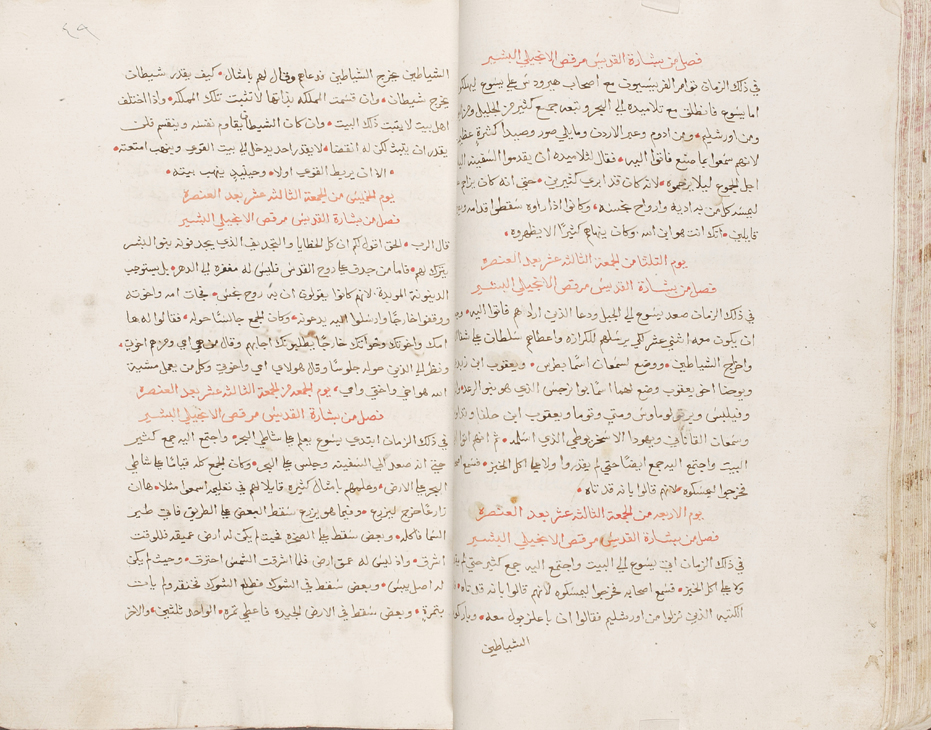 فصل من بشارة القديس مرقص الانجيلي البشير
في ذلك الزمان توامر الفريسيون مع اصحاب هيرودس على يسوع ليهلكوه
اما يسوع فانطلق مع تلاميذه الى البحر وتبعه جمع كثير من الجليل ومن
ومن اورشليم ومن ادوم وعبر الاردن وما يلي صور وصيدا كثيرة
لانهم سمعوا بما صنع فاتوا اليه فقال لتلاميذه ان يقدموا السفينه اليه
اجل الجموع ليلا يزحموه لانه كان قد ابرى كثيرين حتى انه كان
ليمسه كل من به ادية وارواح نجسه وكانوا اذا راوه سقطوا قدامه
قايلين انك انت هو ابن الله وكان ينهاهم كثيرًا الا يظهروه
يوم الثلثا من الجمعة الثالثه عشر بعد العنصره
فصل من بشارة القديس مرقص الانجيلي البشير
في ذلك الزمان صعد يسوع الى الجبل ودعا الذين ارادهم فاتوا اليه
ان يكون معه اثني عشر لكي يرسلهم للكرازه واعطاهم سلطان على شفا
واخراج الشياطين ووضع لسمعان اسمًا بطرس ويعقوب ابن زبدى
ويوحنا اخي يعقوب وضع لهما اسما بوانرجس الذي هو بني الرعد
وفيلبس وبرتولوماوس ومتي وتوما ويعقوب ابن حلفا
وسمعان القاناني ويهودا الاسخريوطي الذي اسلمه ثم انهم اتوا
البيت واجتمع اليه جمع ايضًا حتى لم يقدروا ولا على اكل الخبز فسمع
فخرجوا ليمسكوه لانهم قالوا بانه قد تاه
يوم الاربعه من الجمعة الثالثه عشر بعد العنصره
فصل من بشارة القديس مرقص الانجيلي البشير
في ذلك الزمان اتى يسوع الى البيت واجتمع اليه جمع كثير حتى لم
ولا على اكل الخبز فسمع اصحابه فخرجوا ليمسكوه لانهم قالوا بانه قد تاه
الكتبه الذين نزلوا من اورشليم فقالوا ان باعلزبول معه
الشياطين
٤٩
الشياطين يخرج الشياطين فدعاهم وقال لهم بامثال كيف يقدر شيطان
يخرج شيطان وان قسمت المملكه بذاتها لا تثبت تلك المملكه واذا اختلف
اهل بيت لا يثبت ذلك البيت وان كان الشيطان يقاوم نفسه وينقسم فلن
يقدر ان يثبت لكن له انقضا لا يقدر احد يدخل الى بيت القوي وينهب امتعته
الا ان يربط القوي اولا وحينيذ ينهب بيته
يوم الخميس من الجمعة الثالثه عشر بعد العنصره
فصل من بشارة القديس مرقص الانجيلي البشير
قال الرب الحق اقول لكم ان كل الخطايا والتجديف الذي يجدفونه بنوا البشر
يترك لهم فاما من جدف على روح القدس فليس له مغفره الى الدهر بل يستوجب
الدينونة الموبدة لانهم كانوا يقولون ان به روح نجس فجات امه واخوته
ووقفوا خارجًا وارسلوا اليه يدعونه وكان الجمع جالسًا حوله فقالوا له ها
امك واخوتك واخواتك خارجًا يطلبونك اجابهم وقال من هي امي ومن هم اخوتي
ونظر الى الذين حوله جلوسًا وقال هولاي امي واخوتي وكل من يعمل مشية
الله هو اخي واختي وامي يوم الجمعه من الجمعة الثالثه عشر بعد العنصره
فصل من بشارة القديس مرقص الانجيلي البشير
في ذلك الزمان ابتدى يسوع يعلم على شاطي البحر واجتمع اليه جمع كثير
حتى انه صعد الى السفينه وجلس على البحر وكان الجمع كله قيامًا على شاطي
البحر على الارض وعلمهم بامثال كثيره قايلا لهم في تعليمه اسمعوا مثلا ها ان
زارعًا خرج ليزرع وفيما هو يزرع سقط البعض على الطريق فاتى طير
السما فاكله وبعض سقط على الصخره بحيث لم يكن له ارض عميقه فللوقت
اشرق واذ ليس له عمق ارض فلما اشرقت الشمس احترق وحيث لم يكن
له اصل يبس وبعض سقط في الشوك فطلع الشوك فخنقه ولم يات
بثمرة وبعض سقط في الارض الجيده فاعطى ثمره الواحد ثلثين والاخر